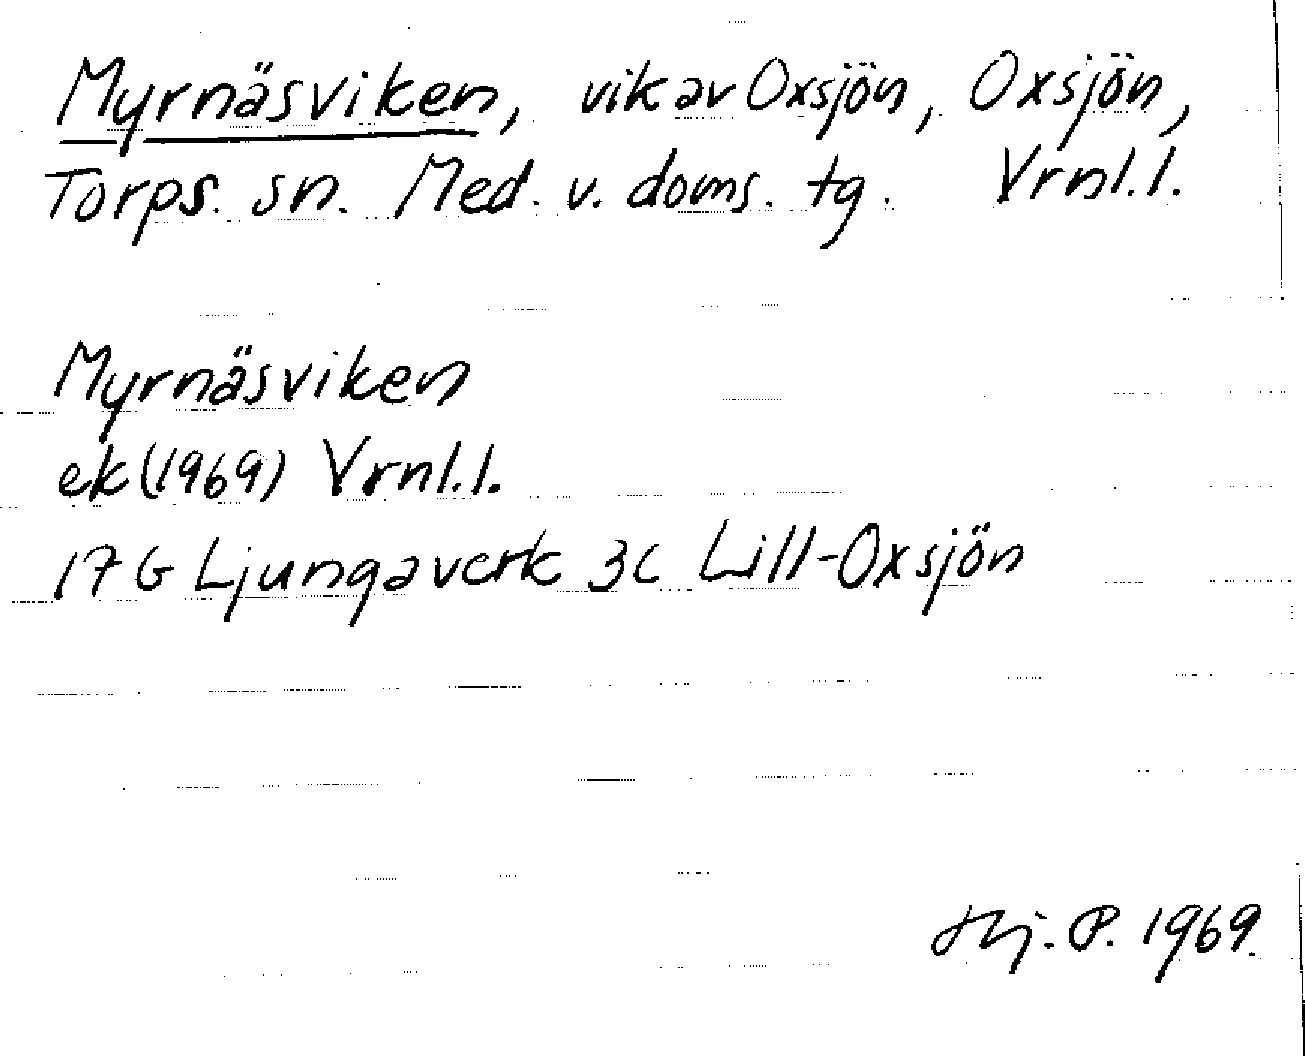 Myrnäsviken, vik av Oxsjön, Oxsjön,
Torps. sn. Med. v. doms. tg. Vrnl.l.
Myrnäsviken
ek (1969) Vrnl.l.
17 G Ljungaverk 3c Lill-Oxsjön
Hj. P. 1969.